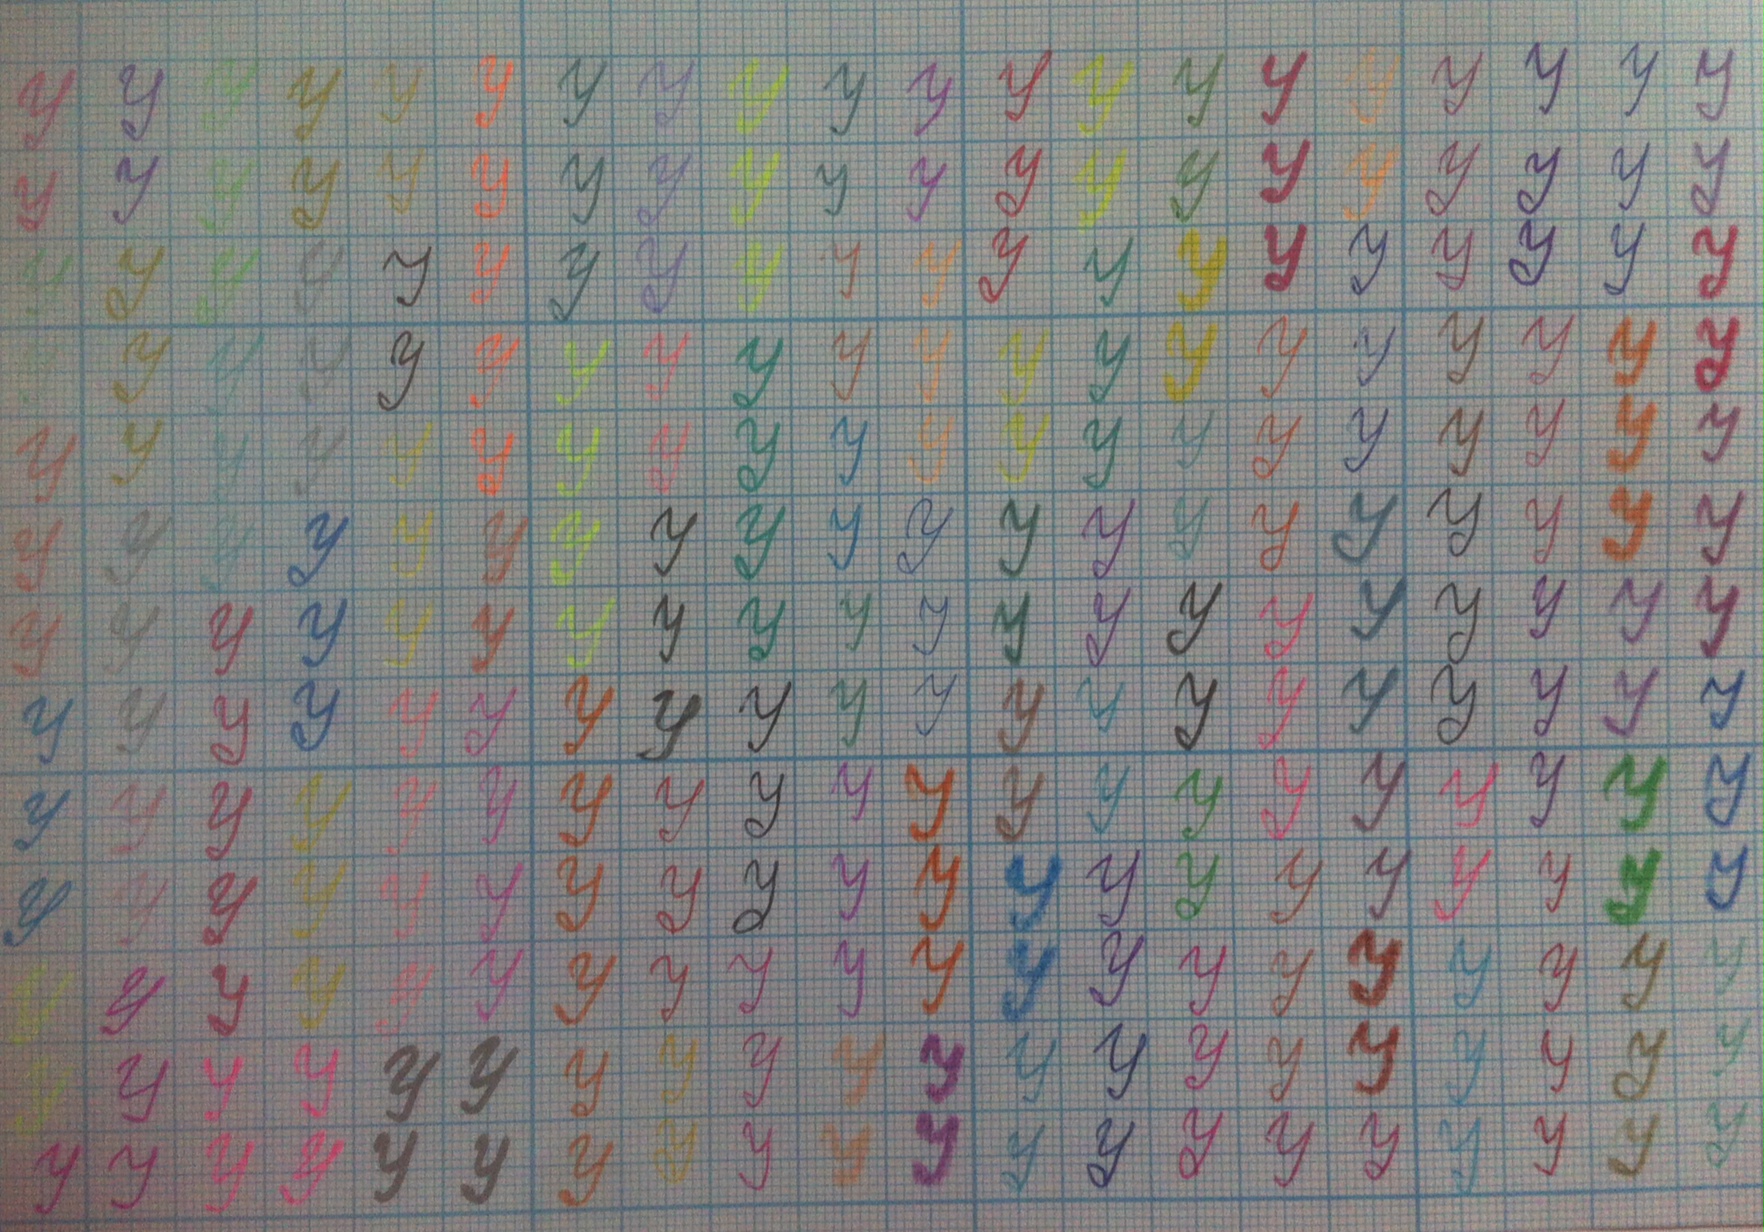 y y y y y y y y y y y y y y y y y y y y
y y y y y y y y y y y y y y y y y y y y
y y y y y y y y y y y y y y y y y y y y
y y y y y y y y y y y y y y y y y y y y
y y y y y y y y y y y y y y y y y y y y
y y y y y y y y y y y y y y y y y y y y
y y y y y y y y y y y y y y y y y y y y
y y y y y y y y y y y y y y y y y y y y
y y y y y y y y y y y y y y y y y y y y
y y y y y y y y y y y y y y y y y y y y
y y y y y y y y y y y y y y y y y y y y
y y y y y y y y y y y y y y y y y y y y
y y y y y y y y y y y y y y y y y y y y